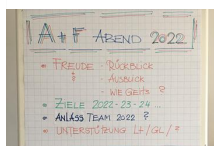 A + F ABEND 2022
• FREUDE - RÜCKBLICK
? - AUSBLICK
- WIE GEHTS ?
• ZIELE 2022-23-24 ...
• ANLÄSS TEAM 2022 ?
• UNTERSTÜTZUNG LH/GL/?